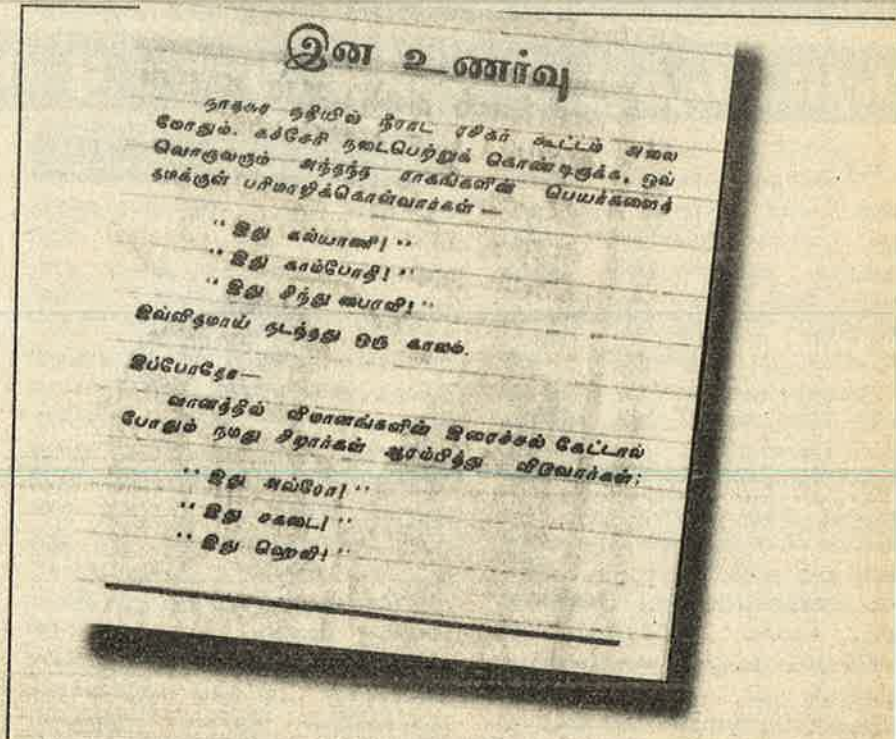 இன உணர்வு
நாதசுர நதியில் நீராட ரசிகர் கூட்டம் அலை
மோதும். கச்சேரி நடைபெற்றுக் கொண்டிருக்க, ஒவ்
வொருவரும் அந்தந்த ராகங்களின் பெயர்களைத்
தமக்குள் பரிமாறிக்கொள்வார்கள் —
“ இது கல்யாணி! ”
“ இது காம்போதி! ”
“ இது சிந்து பைரவி! ”
இவ்விதமாய் நடந்தது ஒரு காலம்.
இப்போதோ—
வானத்தில் விமானங்களின் இரைச்சல் கேட்டால்
போதும் நமது சிறார்கள் ஆரம்பித்து விடுவார்கள்:
“ இது அவ்ரோ! ”
“ இது சகடை! ”
“ இது ஹெலி! ”